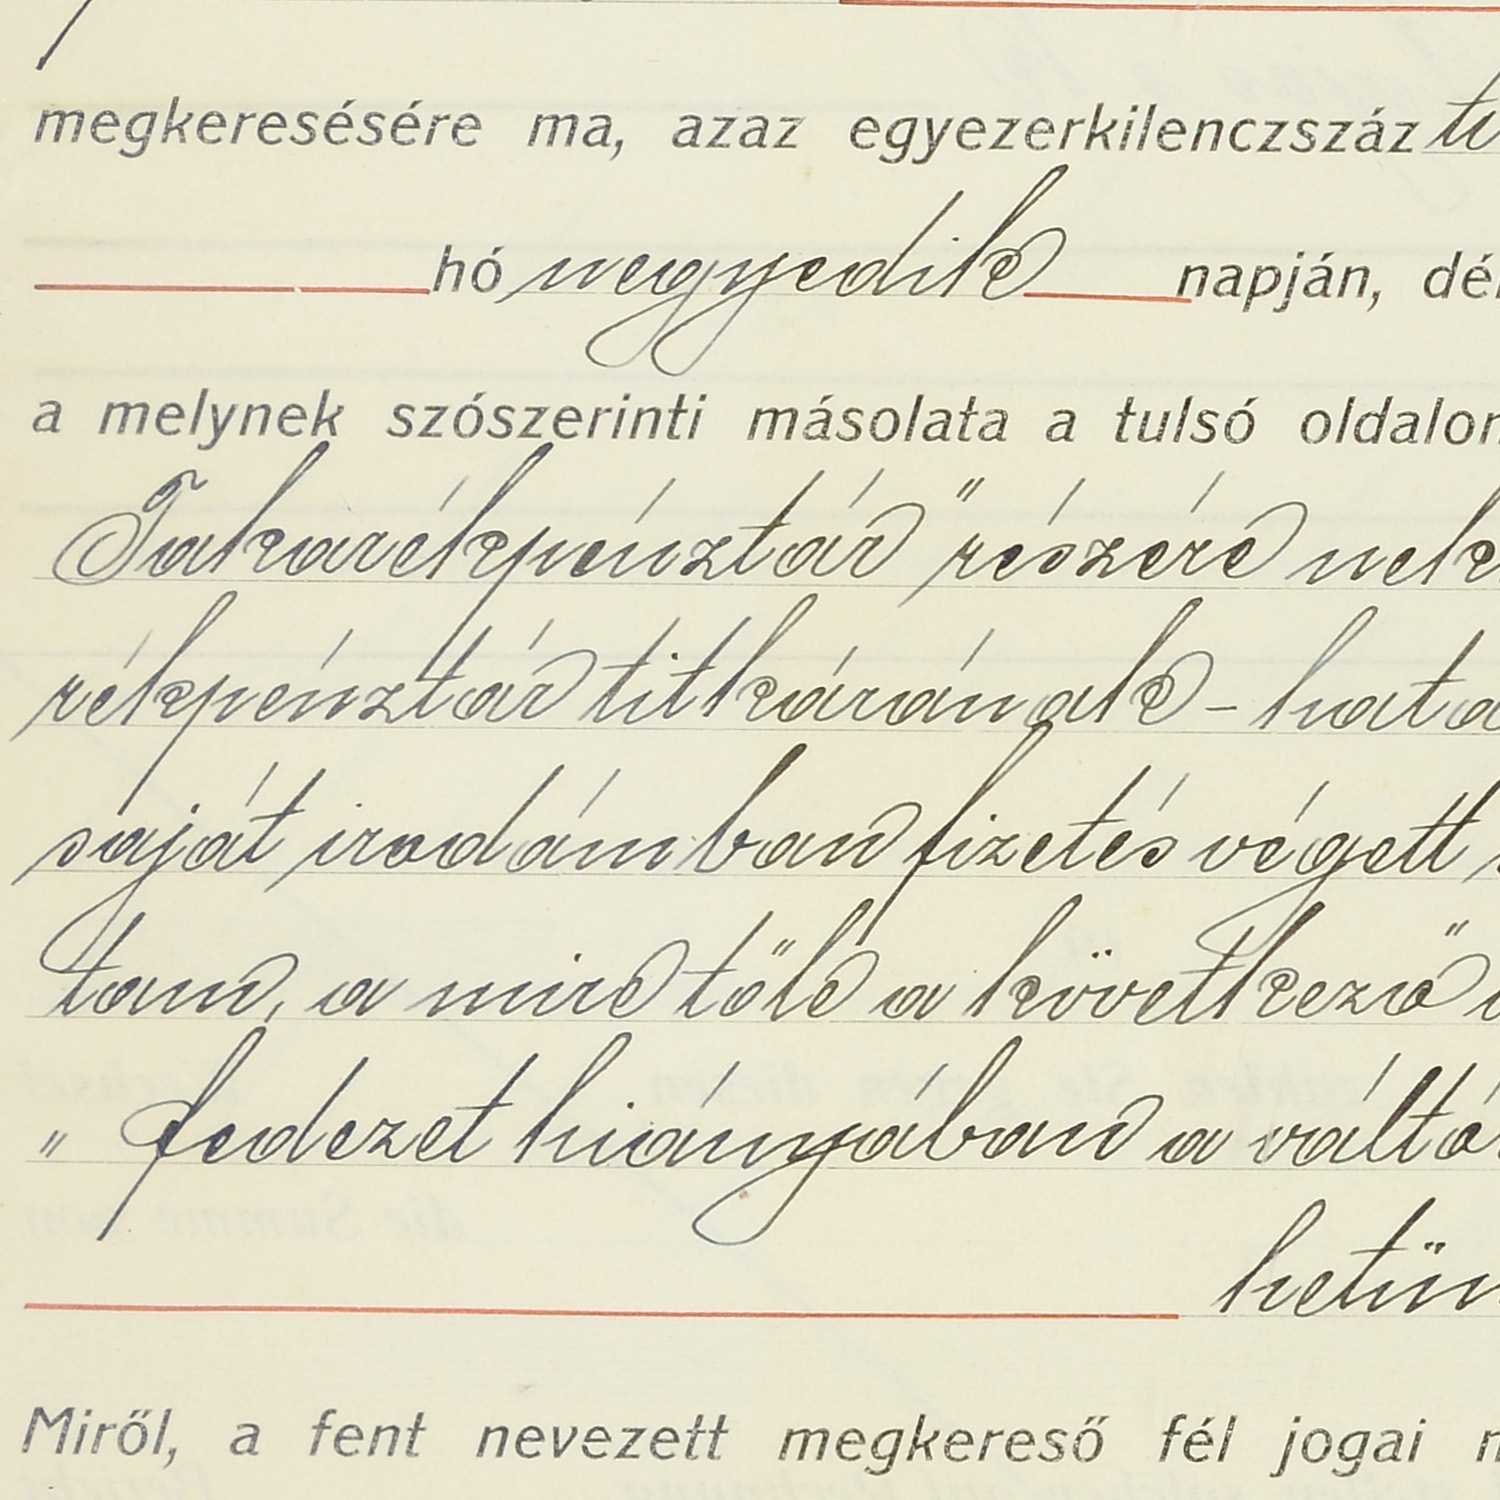 megkeresésére ma, azaz egyezerkilenczszáz ti
hó negyedik napján, dél
a melynek szószerinti másolata a tulsó oldalon
Takarékpénztár" részére nek
rékpénztár titkárának - hata
saját irodámban fizetés végett
tam, a mire tőle a következő
" fedezet hiányában a váltó
hetün
Miről, a fent nevezett megkereső fél jogai